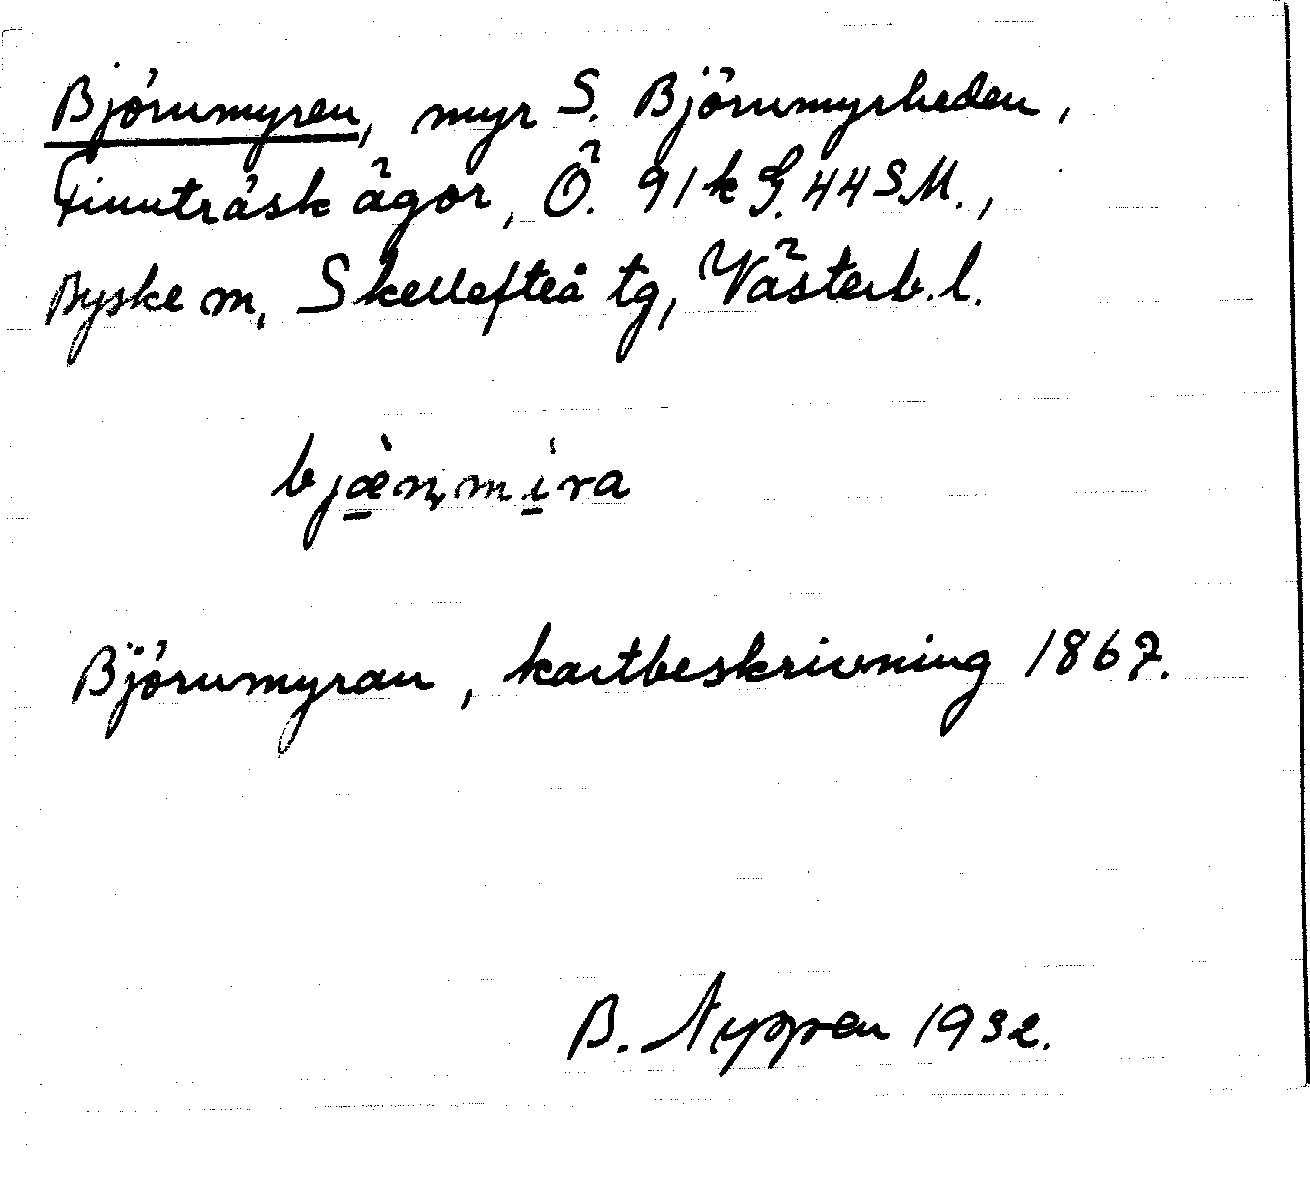 Björnmyren, myr S. Björnmyrheden,
Finnträsk ägor, Ö. 91 k G. 44 S.M.,
Byske sn, Skellefteå tg, Västerb. l.
bjæ̀n̥mi̇̀ra
Björnmyran, kartbeskrivning 1867.
B. 1932.